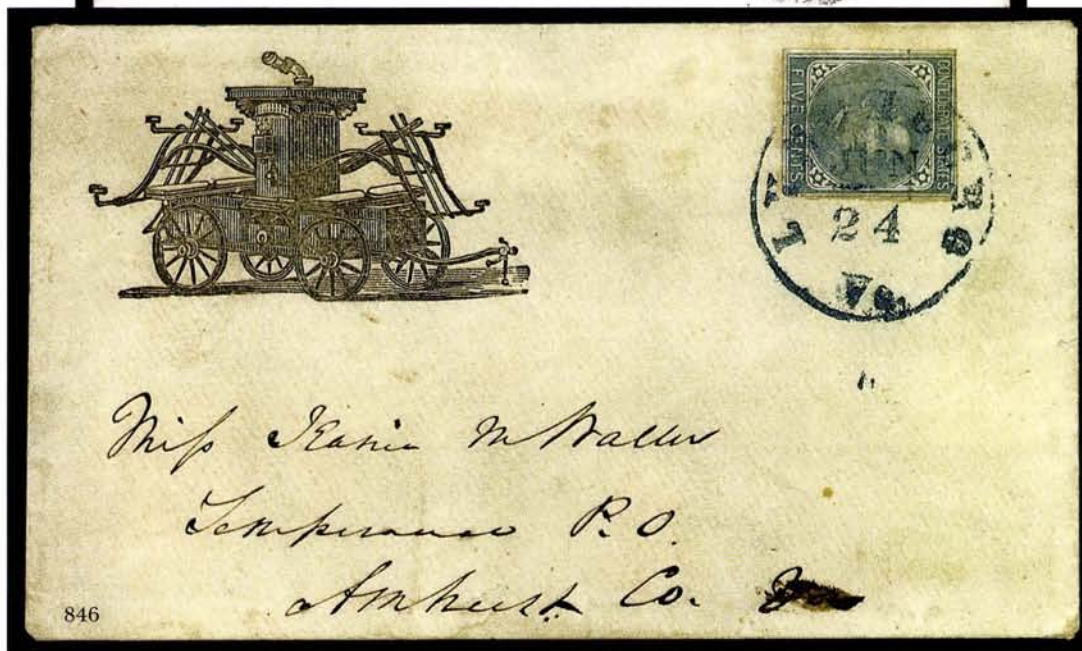 CONFEDERATE STATES
FIVE CENTS
JUN
24
Va.
Miſs M Waller
Temperance P.O.
Amherst Co.
846